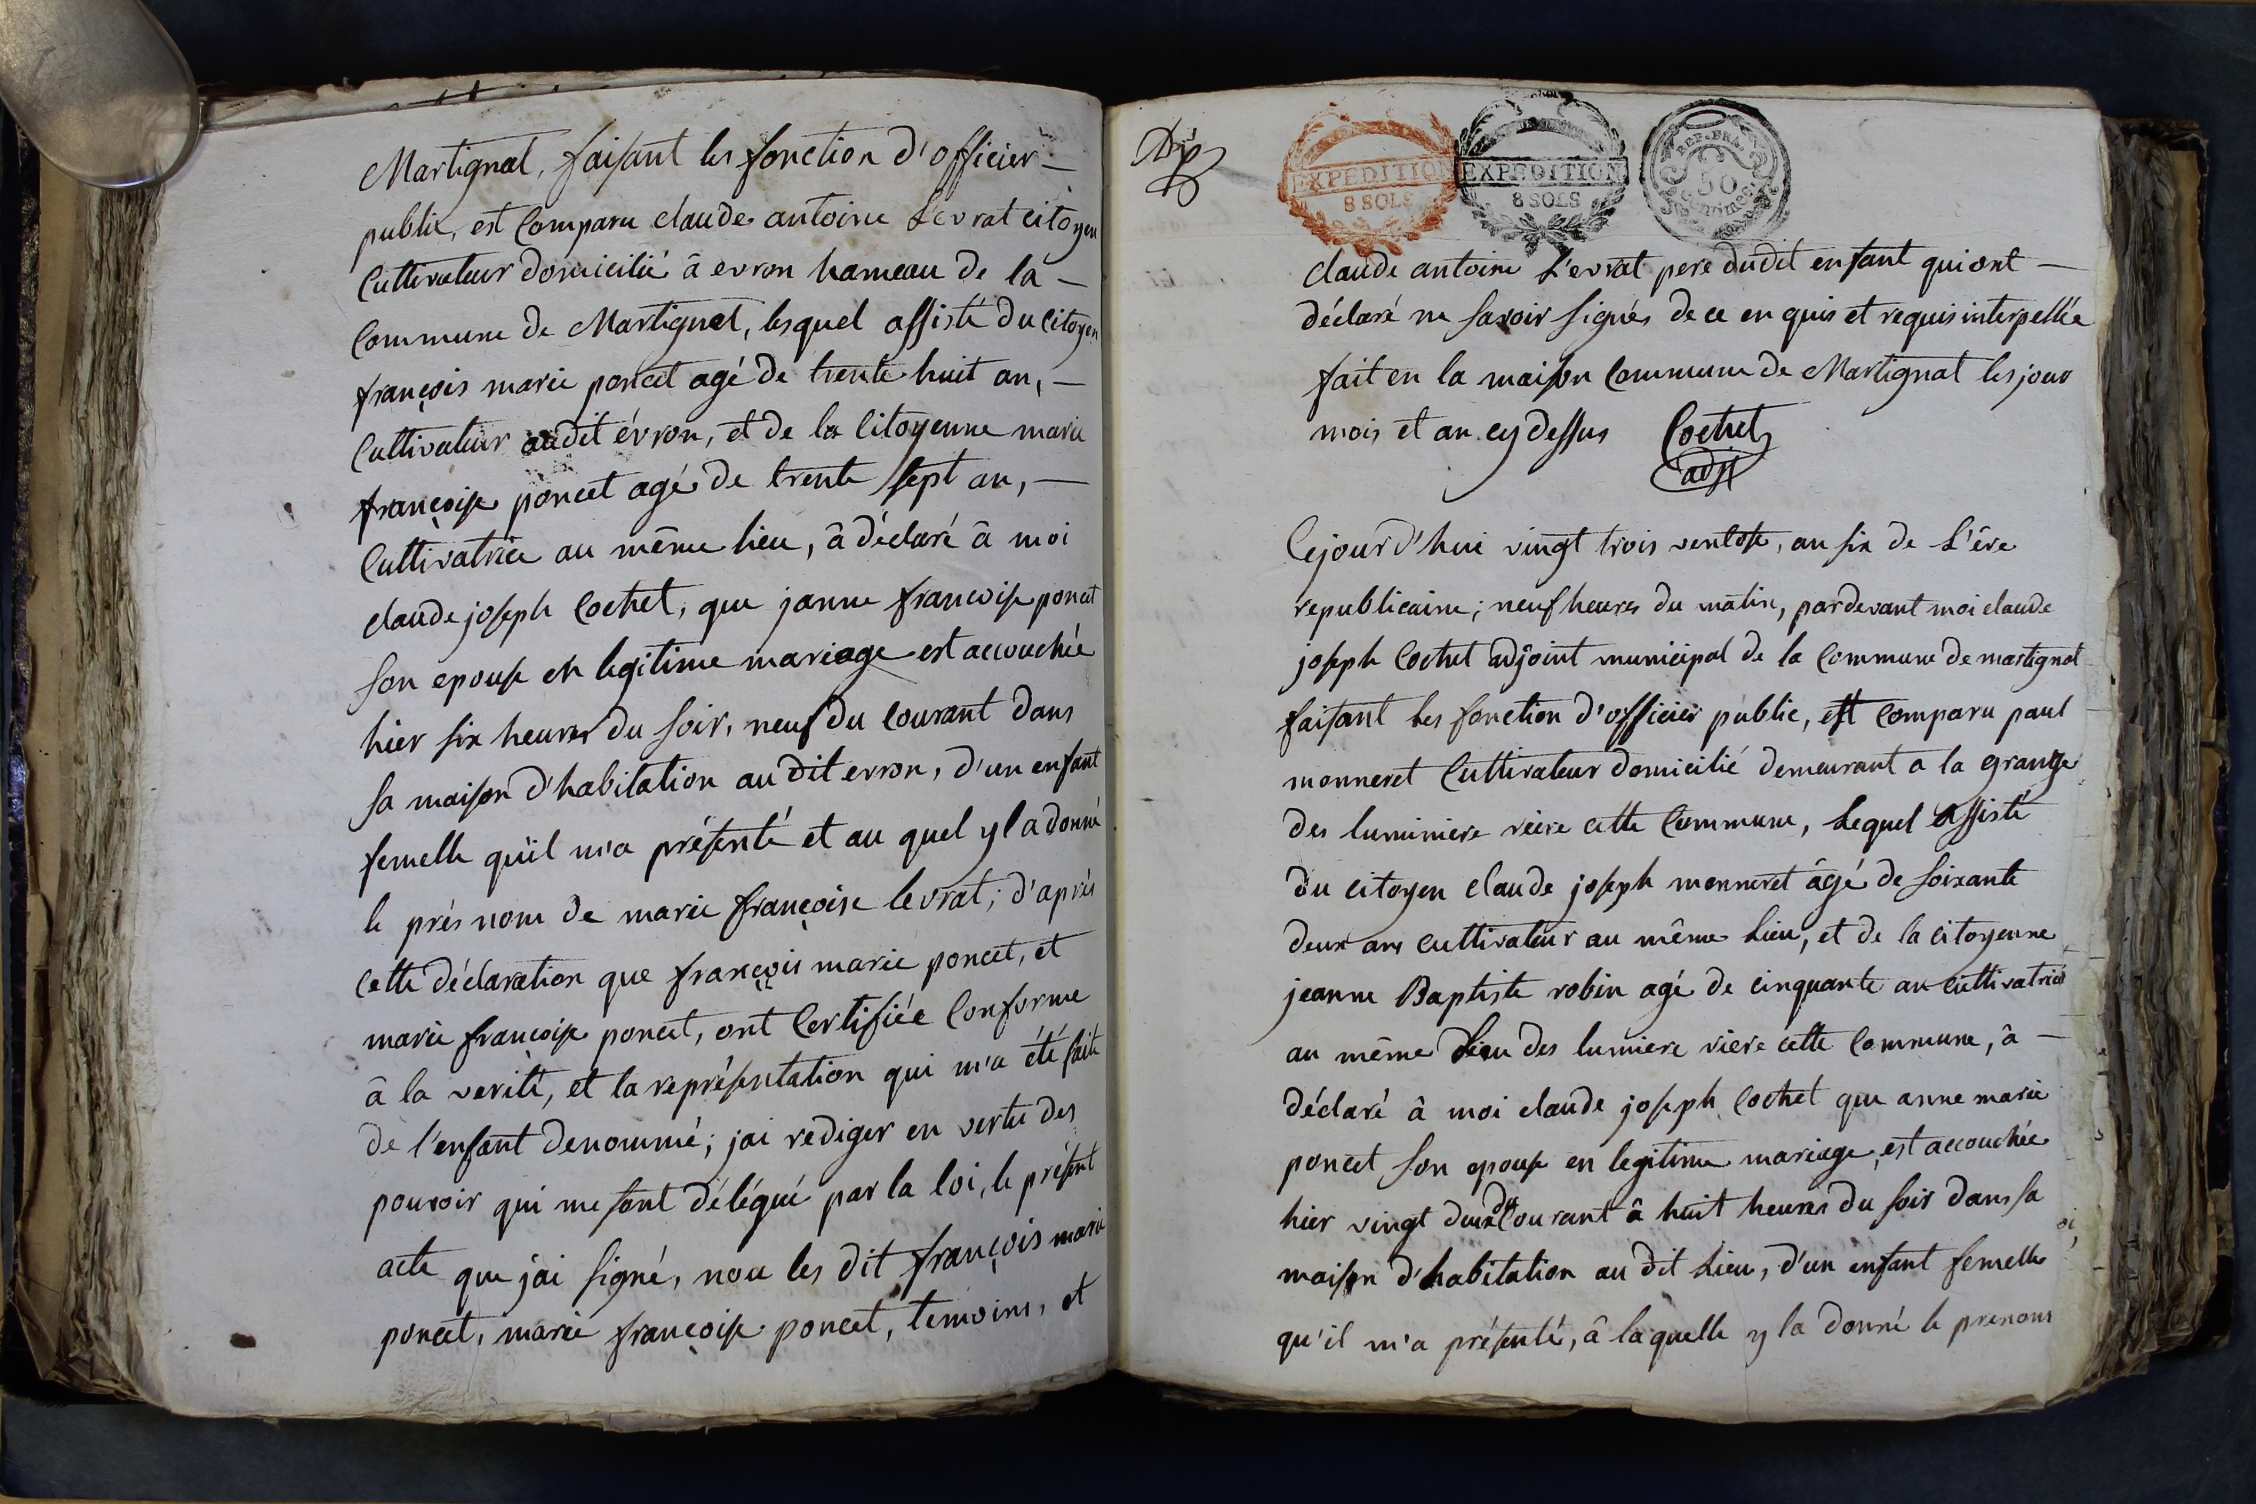 Martignat, faisant les fonction d'officier —
public, est Comparu claude antoine L'evrat citoyen
Cultivateur domicilié â evron hameau de la —
Commune de Martignat, lesquel assisté du Citoyen
françois marie poncet agé de trente huit an, —
Cultivateur audit évron, et de la Citoyenne marie
françoise poncet agé de trente sept an, —
Cultivatrice au même lieu, â déclaré â moi
claude joseph Cochet, que janne francoise poncet
son epouse en legitime mariage est accouchée
hier six heures du soir, neuf du courant dans
sa maison d'habitation au dit evron, d'un enfant
femelle qu'il m'a présenté et au quel yl a donné
le prés nom de marie françoise levrat; d'aprés
Cette déclaration que françois marie poncet, et
marie françoise poncet, ont Certifiée Conforme
â la verité, et la représentation qui m'a été faite
de l'enfant denommé; jai rediger en vertu des
pouvoir qui me sont délégué par la loi, le présent
acte que jai signé, non les dit françois marie
poncet, marie françoise poncet, temoins, et
EXPEDITION
8 SOLS
EXPEDITION
8 SOLS
REP. FRA.
50
Centimes
claude antoine L'evrat pere dudit enfant qui ont —
déclaré ne savoir signés de ce en quis et requis interpellée
fait en la maison Commune de Martignat les jour
mois et an cy dessus Cochet
adjt
Cejourd'hui vingt trois ventose, an six de L'ére
republicaine; neuf heures du matin, pardevant moi claude
joseph Cochet adjoint municipal de la Commune de martignat
faisant les fonction d'officier public, est comparu paul
monneret Cultivateur domicilié demeurant a la grange
des luminiere riére cette Commune, Lequel assisté
du citoyen claude joseph monneret âgé de soixante
deux ans cultivateur au même Lieu, et de la citoyenne
jeanne Baptiste robin agé de cinquante an cultivatrice
au même Lieu des lumiere riére cette Commune, â —
déclaré â moi claude joseph Cochet que anne marie
poncet son epouse en legitime mariage, est accouchée
hier vingt deux du Courant â huit heures du soir dans sa
maison d'habitation au dit Lieu, d'un enfant femelle
qu'il m'a présenté, â laquelle y la donné le prenom